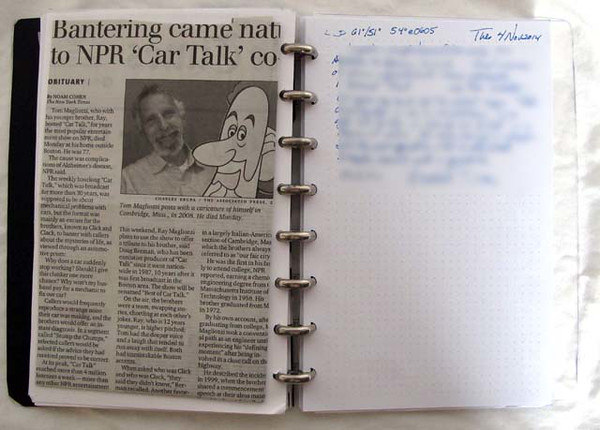 Bantering came nat
to NPR 'Car Talk' co
OBITUARY
By NOAM COHEN
The New York Times
Tom Magliozzi, who with
his younger brother, Ray,
hosted "Car Talk," for years
the most popular entertain-
ment show on NPR, died
Monday at his home outside
Boston. He was 77.
The cause was complica-
tions of Alzheimer's disease,
NPR said.
The weekly hourlong "Car
Talk," which was broadcast
for more than 30 years, was
supposed to be about
mechanical problems with
cars, but the format was
mainly an excuse for the
brothers, known as Click and
Clack, to banter with callers
about the mysteries of life, as
viewed through an automo-
tive prism:
Why does a car suddenly
stop working? Should I give
this clunker one more
chance? Why won't my hus-
band pay for a mechanic to
fix our car?
Callers would frequently
reproduce a strange noise
their car was making, and the
brothers would offer an in-
stant diagnosis. In a segment
called "Stump the Chumps,"
selected callers would be
asked if the advice they had
received proved to be correct.
At its peak, "Car Talk"
reached more than 4 million
listeners a week — more than
any other NPR entertainment
CHARLES KRUPA / THE ASSOCIATED PRESS
Tom Magliozzi poses with a caricature of himself in
Cambridge, Mass., in 2008. He died Monday.
This weekend, Ray Magliozzi
plans to use the show to offer
a tribute to his brother, said
Doug Berman, who has been
executive producer of "Car
Talk" since it went nation-
wide in 1987, 10 years after it
was first broadcast in the
Boston area. The show will be
renamed "Best of Car Talk."
On the air, the brothers
were a team, swapping sto-
ries, chortling at each other's
jokes. Ray, who is 12 years
younger, is higher pitched;
Tom had the deeper voice
and a laugh that tended to
run away with itself. Both
had unmistakable Boston
accents.
When asked who was Click
and who was Clack, "they
said they didn't know," Ber-
man recalled. Another
in a largely Italian-Americ
section of Cambridge, Mas
which the brothers always
referred to as "our fair city
He was the first in his fa
ly to attend college, NPR
reported, earning a chemi
engineering degree from
Massachusetts Institute of
Technology in 1958. His
brother graduated from M
in 1972.
By his own account, after
graduating from college,
Magliozzi took a convent
al path as an engineer until
experiencing his "defining
moment" after being in-
volved in a close call on the
highway.
He described the incident
in 1999, when the brothers
shared a commencement
speech at their alma mater
61°/51° 54°@0605
4 Nov 2014